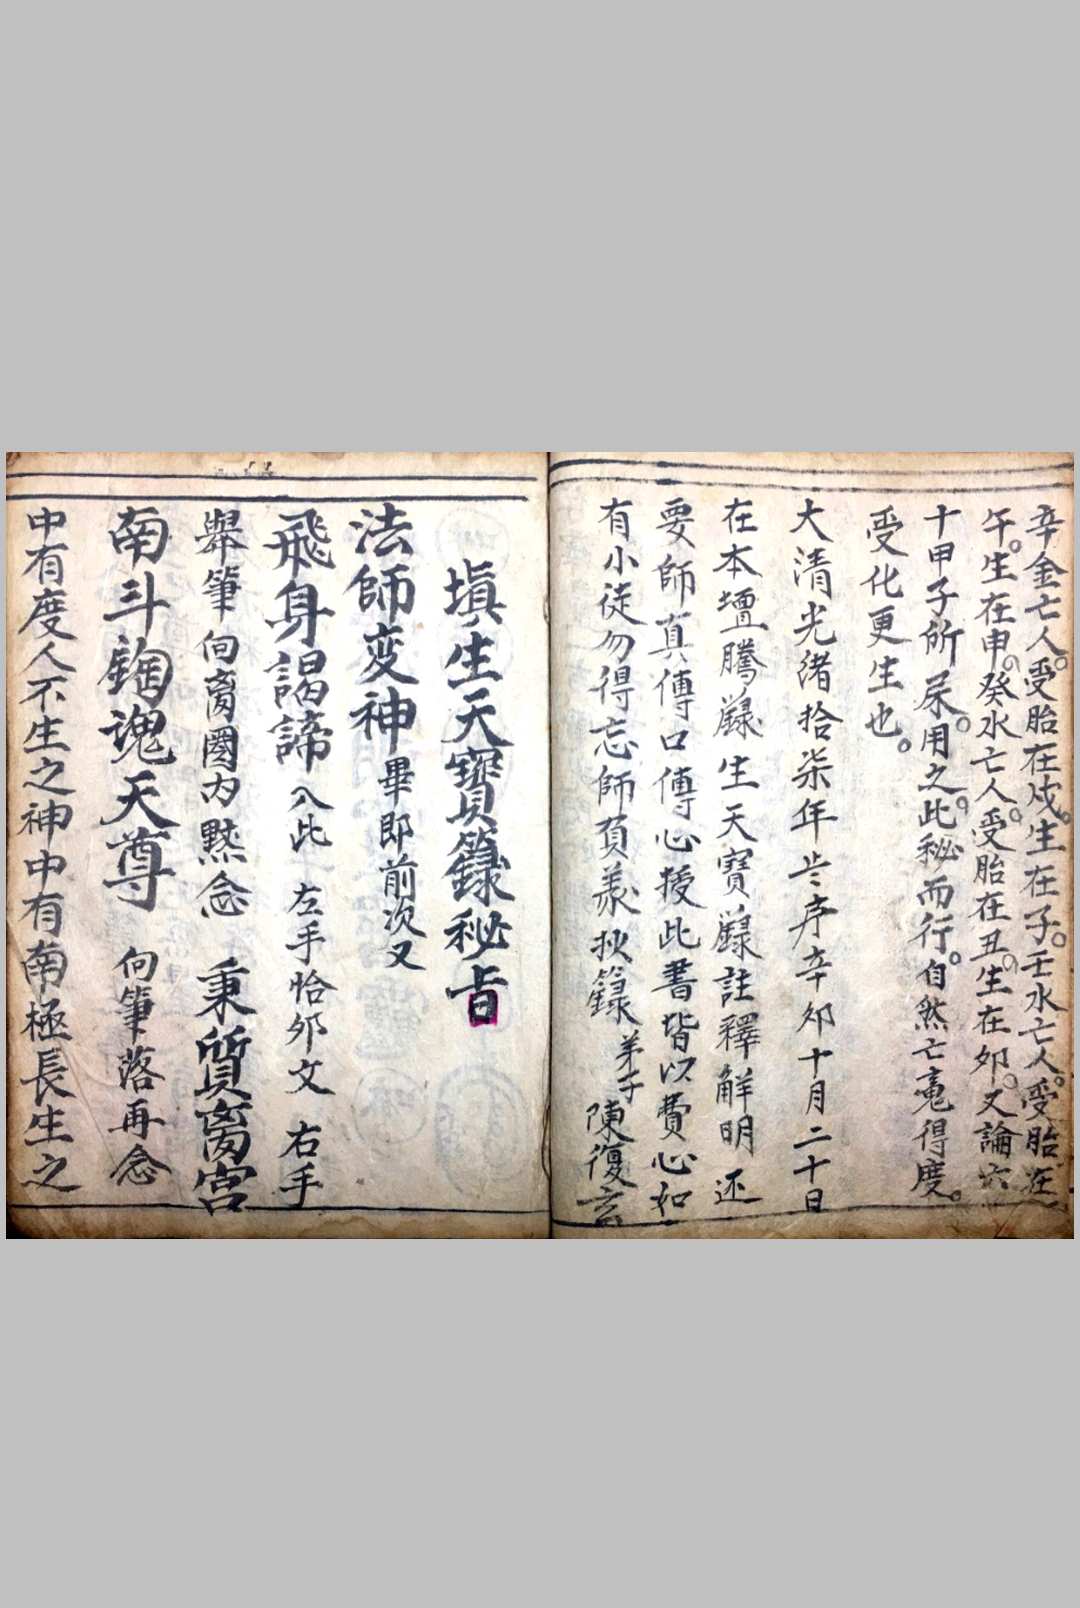 辛金亡人。受胎在戌。生在子。壬水亡人。受胎在
午。生在申。癸水亡人。受胎在丑。生在卯。又論六
十甲子所屎。用之此秘而行。自然亡魂得度。
受化更生也。
大清光緒拾柒年岁序辛卯十月二十日
在本壇騰籙生天寶籙註釋解明还
要師真傳口傳心授此書皆以費心如
有小徒勿得忘師負義抄籙弟子陳復玄
填生天寶籙秘旨
法師変神畢即前次又
飛身謁諦八此 左手恰卯文 右手
舉筆向离圈内黙念 秉質离宮
南斗 魂天尊 向筆落再念
中有度人不生之神中有南極長生之